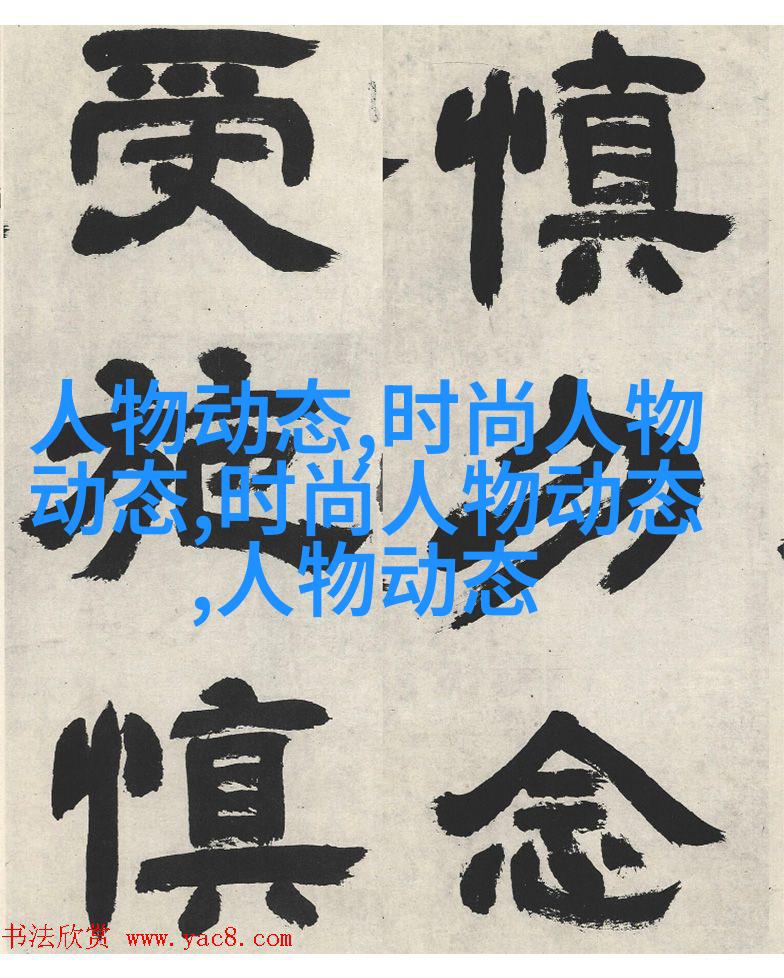 慎勿念
受施慎
人物动态,时尚人物
动态,时尚人物动态
,人物动态
书法欣赏 www.yac8.com